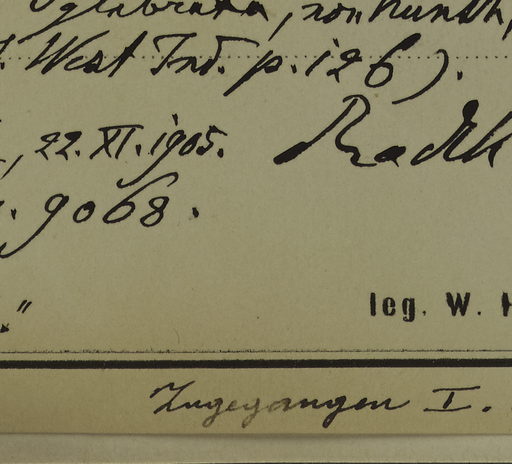 glabrata, non Kunth,
. West Ind. p. 126).
, 22. XI. 1905. Radlk
. 9068.
"
leg. W. H
Zugegangen I.